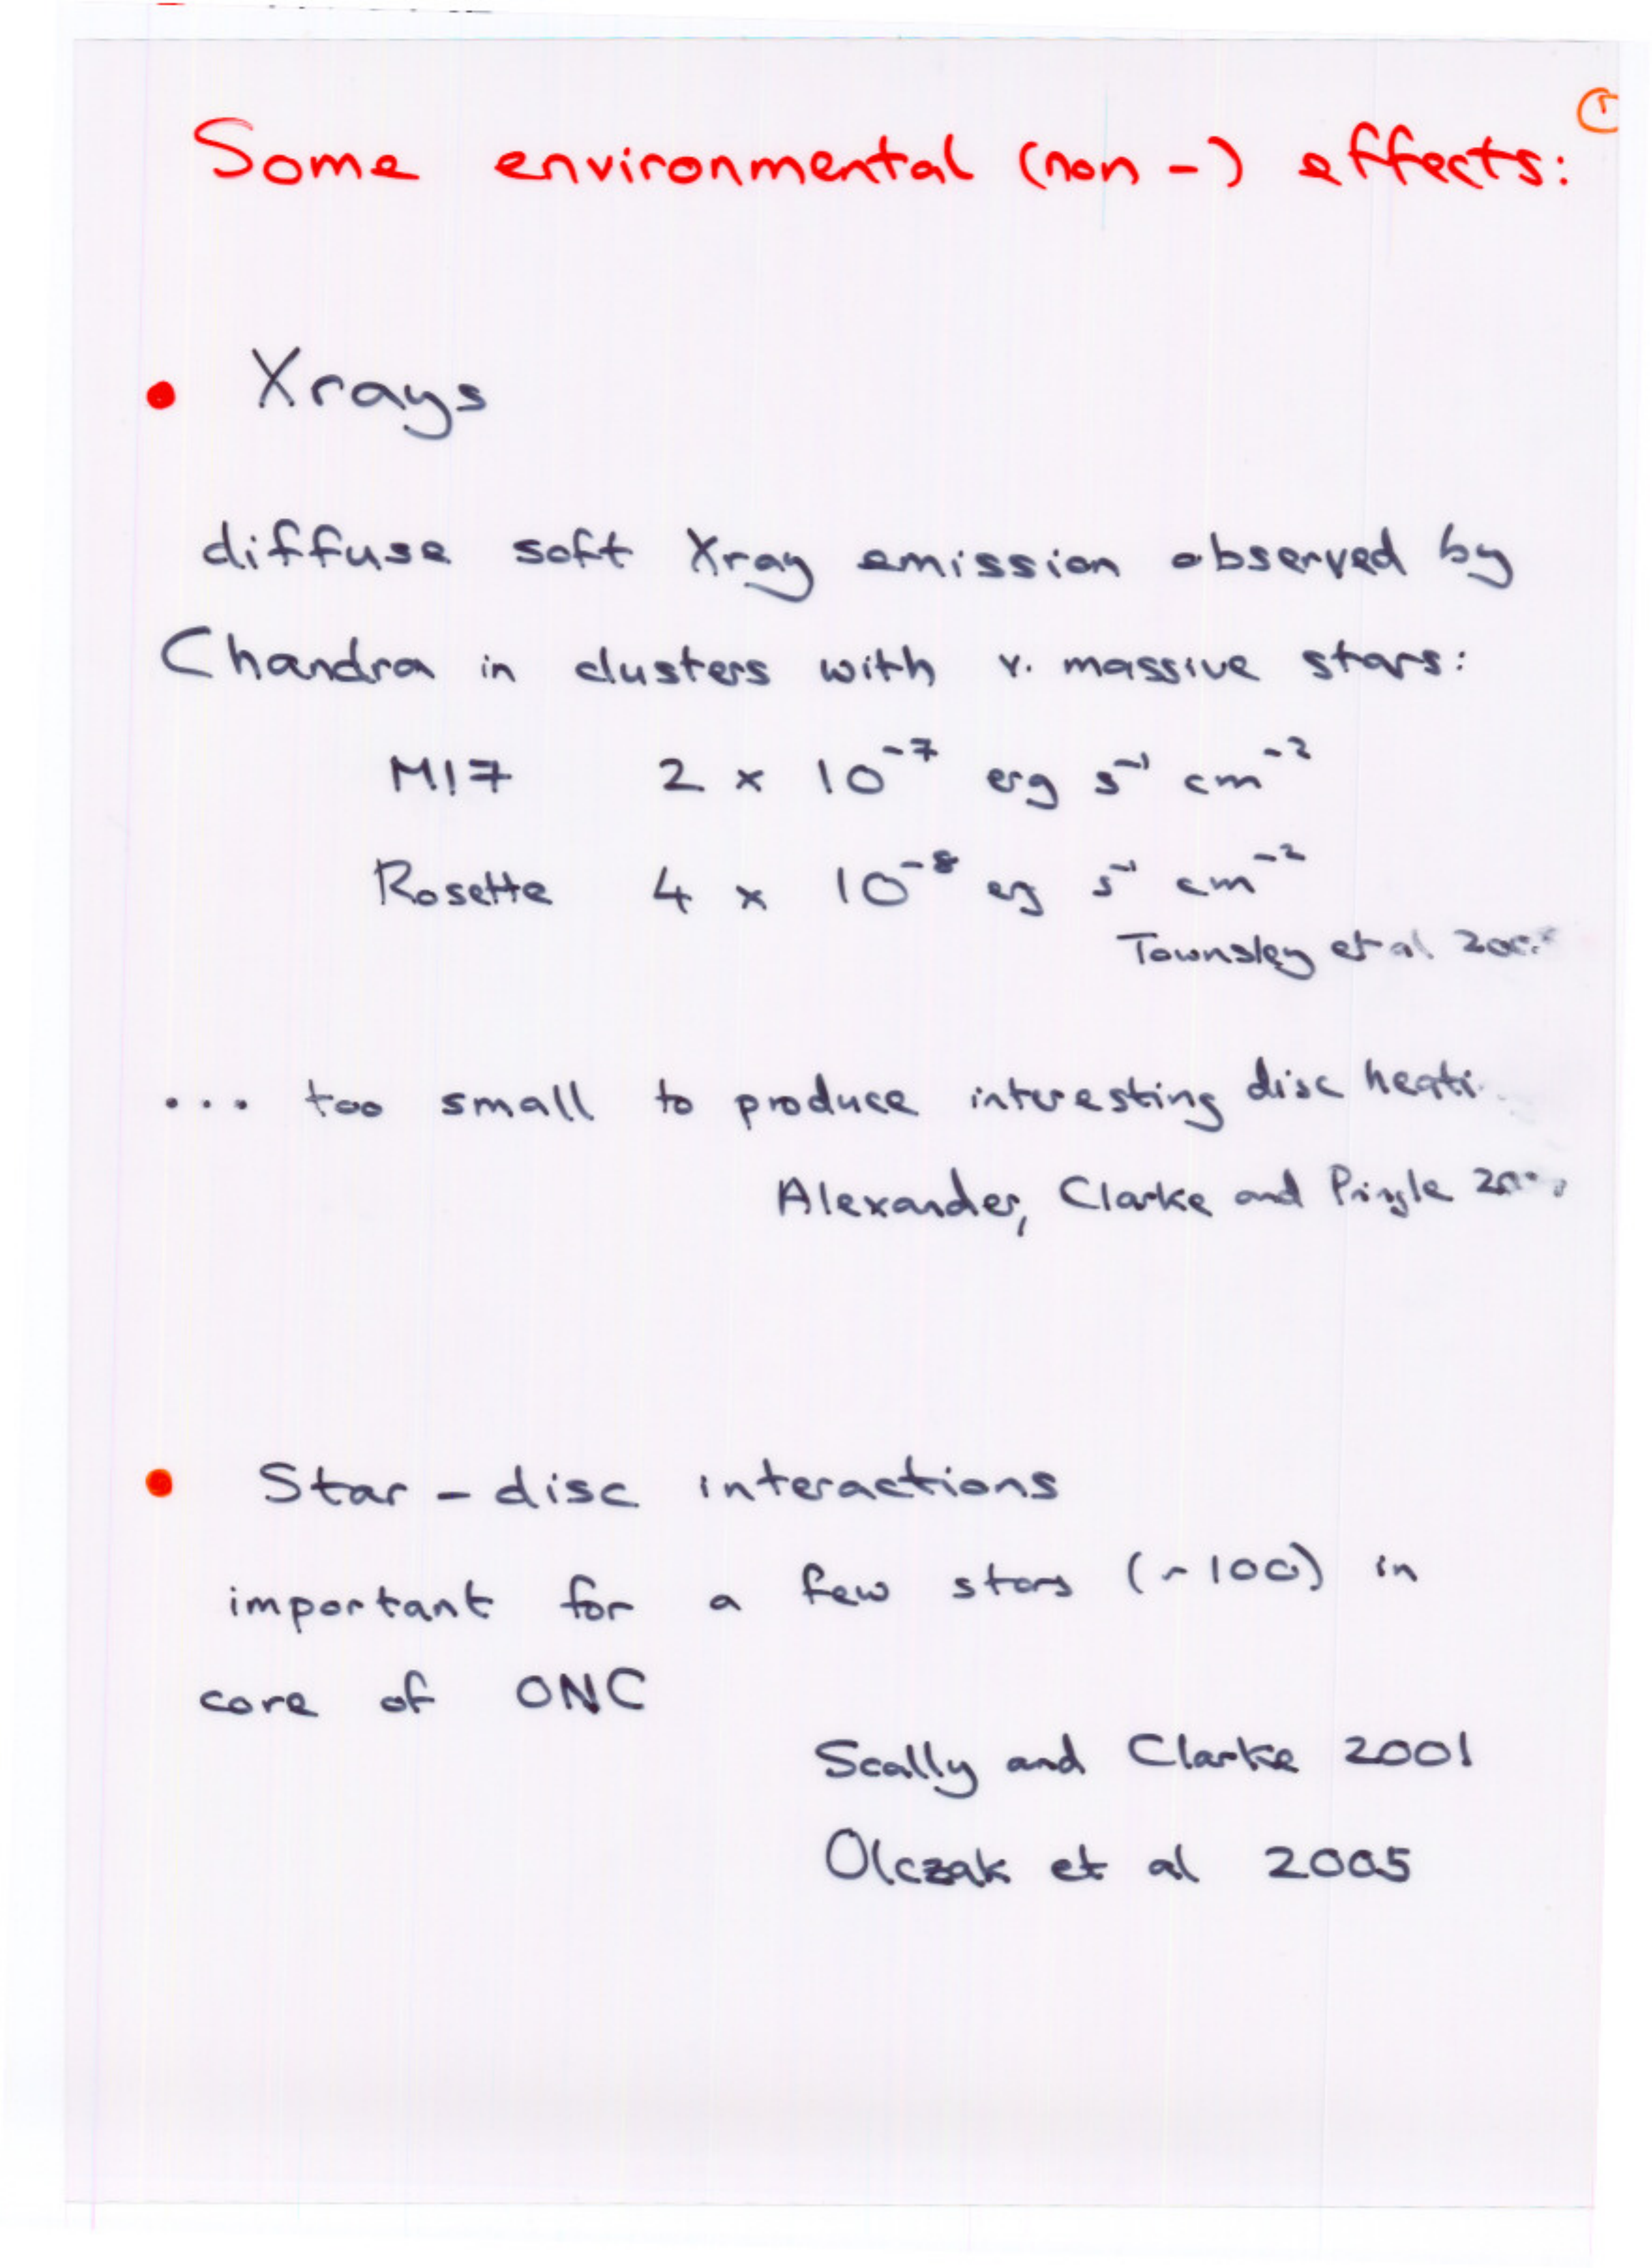 Some environmental (non-) effects:
• Xrays
diffuse soft Xray emission observed by
Chandra in clusters with v. massive stars:
M17 2 × 10⁻⁷ erg s⁻¹ cm⁻²
Rosette 4 × 10⁻⁸ erg s⁻¹ cm⁻²
Townsley et al
... too small to produce interesting disc
Alexander, Clarke and Pringle
• Star - disc interactions
important for a few stars (~100) in
core of ONC
Scally and Clarke 2001
Olczak et al 2005